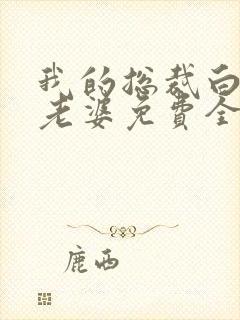 我的总裁白
老婆免费全
鹿西